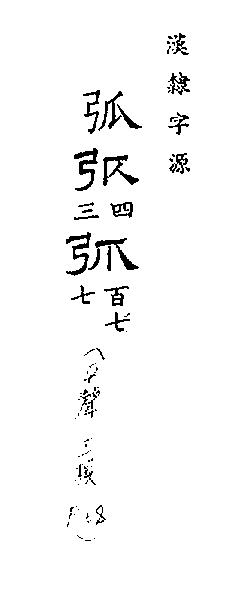 漢隸字源
弧
弧四三
弧百七七
平聲